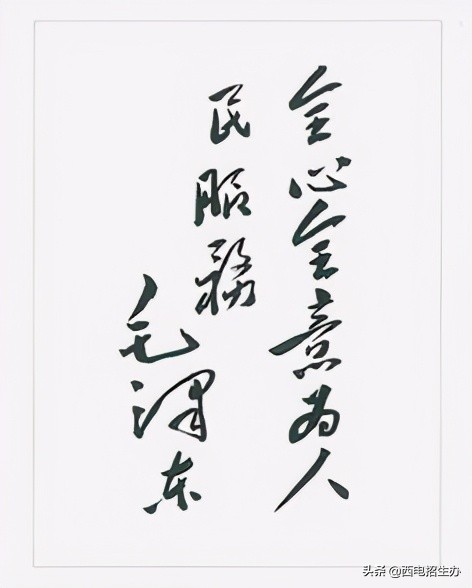 全心全意为人
民服務
毛泽东
头条 @西电招生办